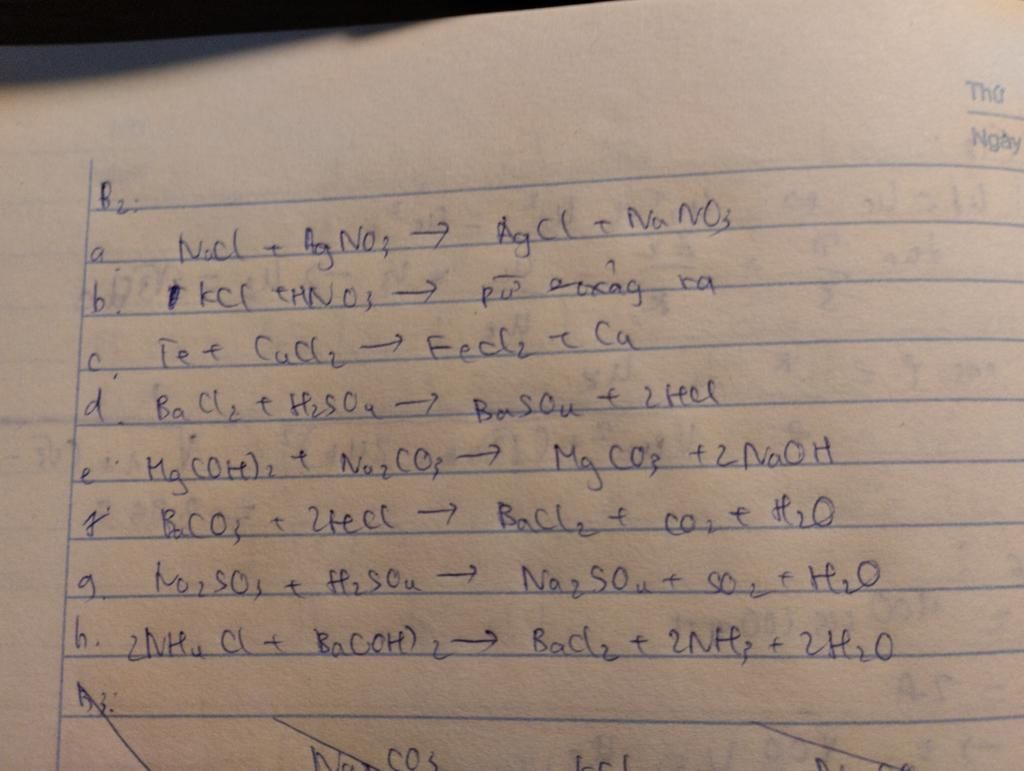 Thứ
Ngày
B2:
a. NaCl + AgNO3 → AgCl + NaNO3
b. KCl + HNO3 → pứ xảy ra
c. Fe + CuCl2 → FeCl2 + Cu
d. BaCl2 + H2SO4 → BaSO4 + 2HCl
e. Mg(OH)2 + Na2CO3 → MgCO3 + 2NaOH
f. BaCO3 + 2HCl → BaCl2 + CO2 + H2O
g. Na2SO3 + H2SO4 → Na2SO4 + SO2 + H2O
h. 2NH4Cl + Ba(OH)2 → BaCl2 + 2NH3 + 2H2O
B3:
CO3 KCl